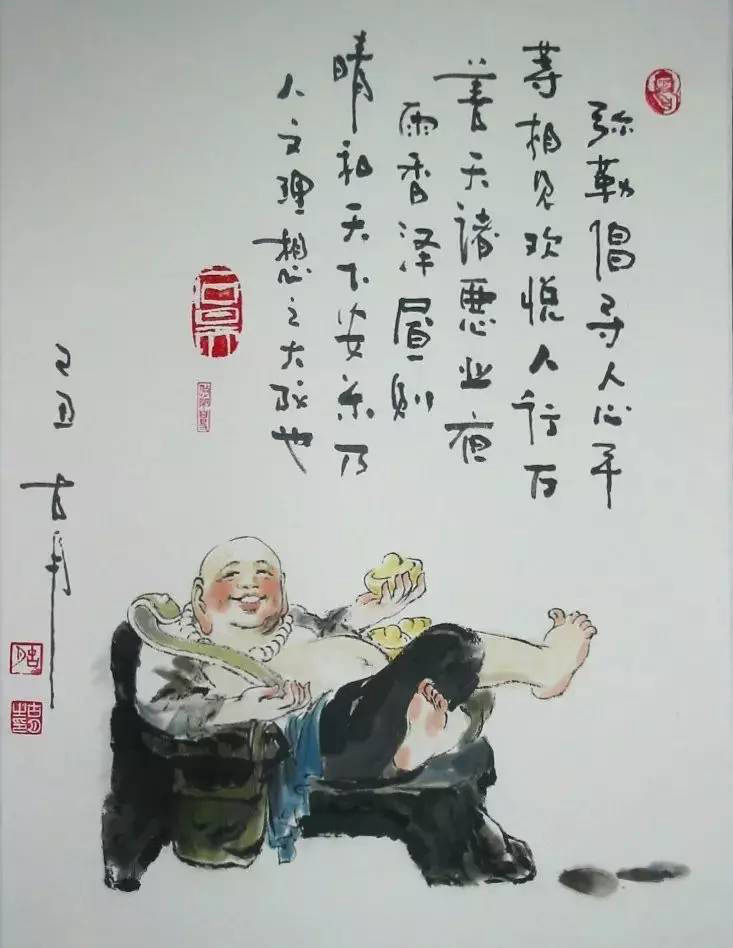 弥勒倡导人心平
等相见欢悦人行百
善无诸恶业夜
雨香泽晝则
晴和天下安乐乃
人文理想之大成也
己丑